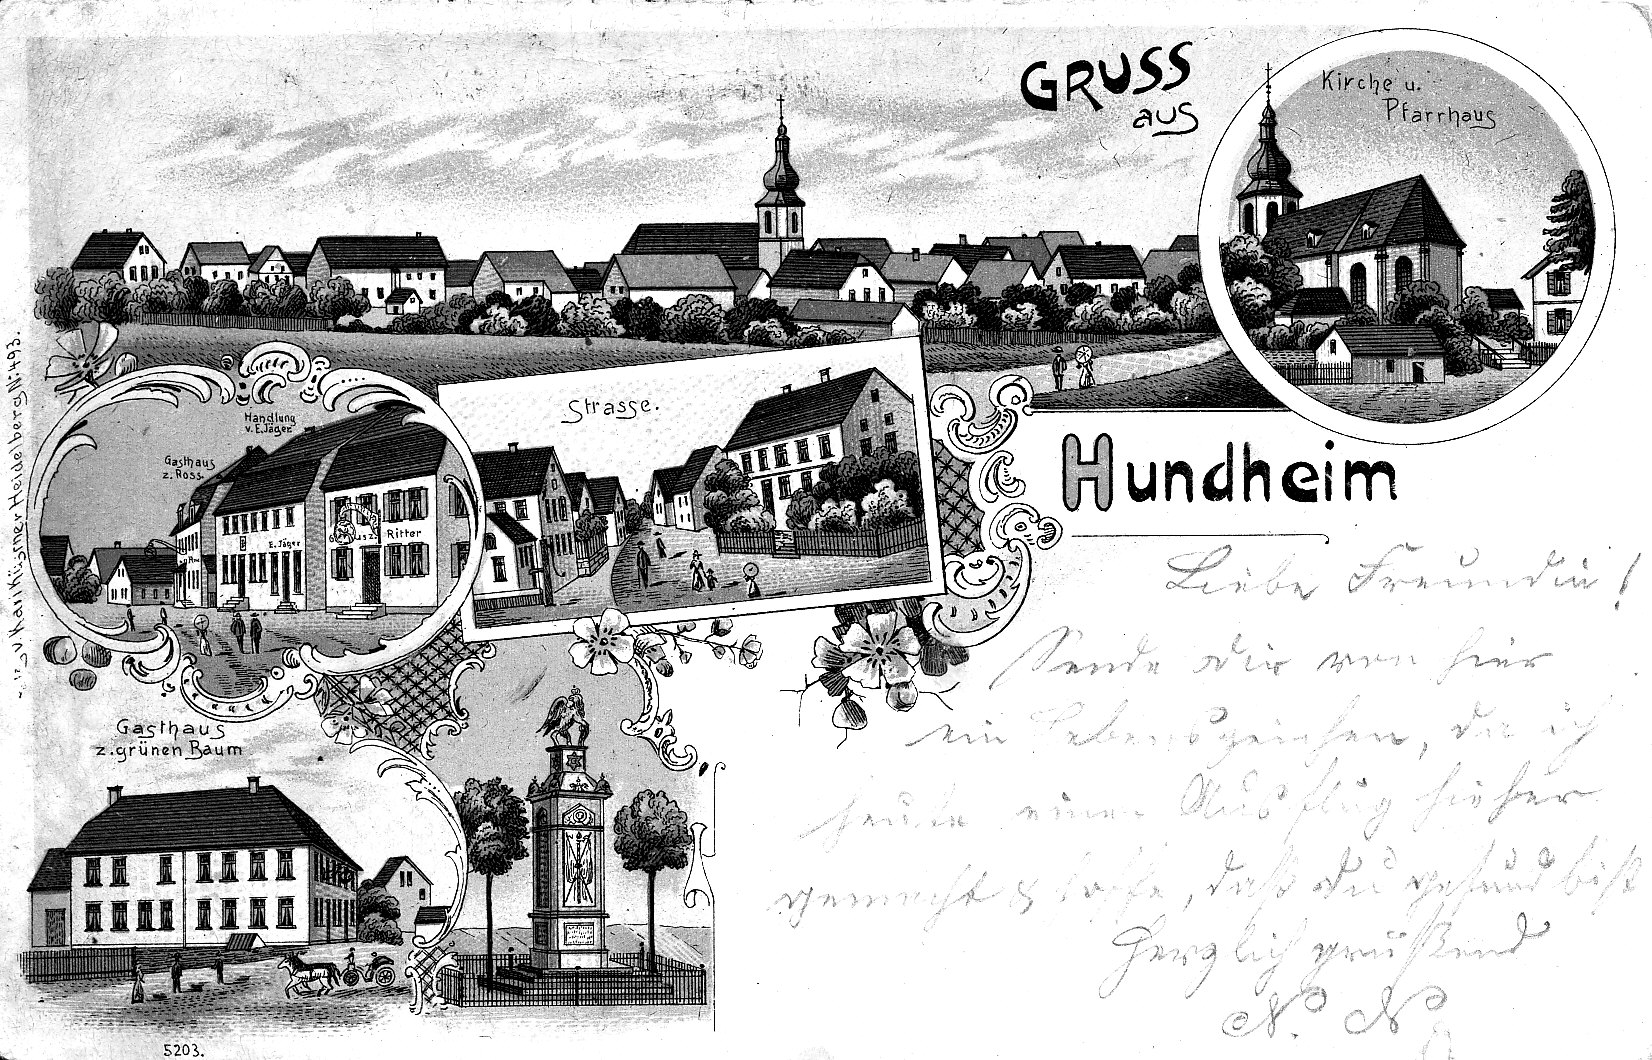 GRUSS
aus
Hundheim
Kirche u.
Pfarrhaus
Strasse.
Handlung
v. E. Jäger.
Gasthaus
z. Ross.
E. Jäger
Ritter
Gasthaus
z. grünen Baum
v. Karl Kirscher Heidelberg No 493.
5203.
Liebe Freundin!
Sende dir von hier
ein Lebenszeichen, da ich
heute einen Ausflug hieher
gemacht & hoffe, daß du gesund bist
Herzlich grüßend
N. N.